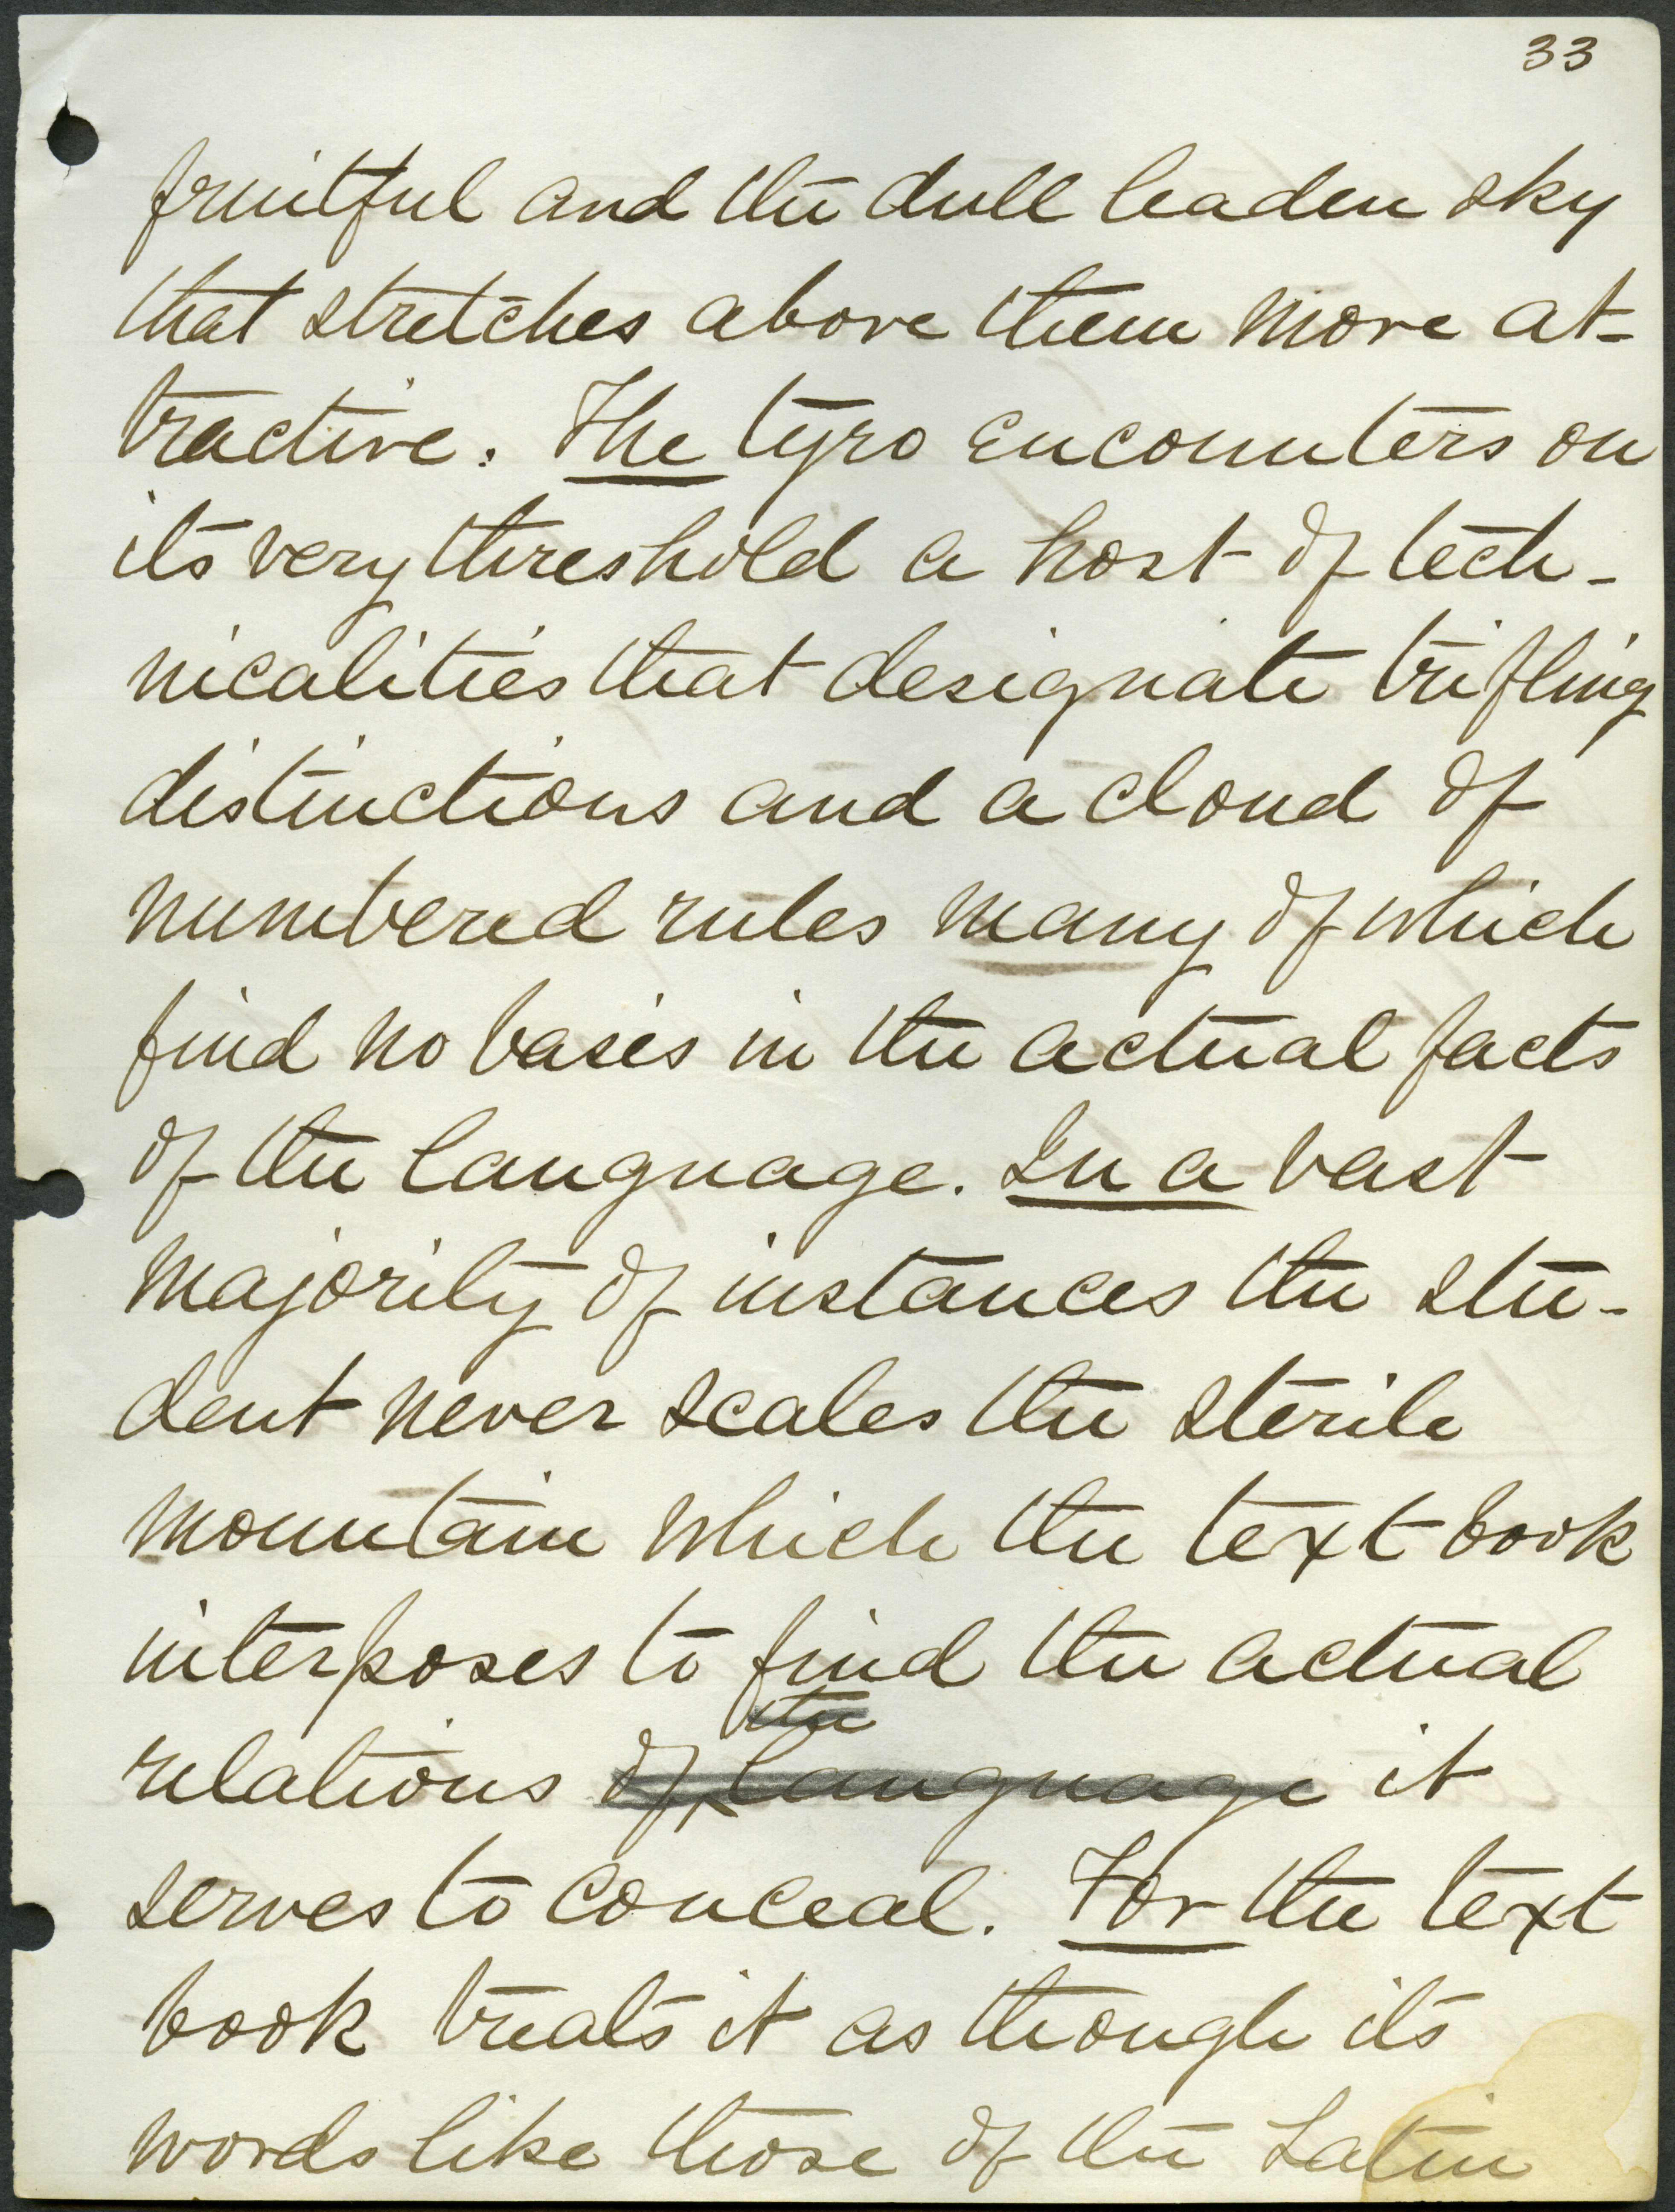 33
fruitful and the dull leaden sky
that stretches above them more at-
tractive. The tyro encounters on
its very threshold a host of tech-
nicalities that designate trifling
distinctions and a cloud of
numbered rules many of which
find no basis in the actual facts
of the language. In a vast
majority of instances the stu-
dent never scales the sterile
mountain which the text book
interposes to find the actual
the
relations of language it
serves to conceal. For the text
book treats it as though its
words like those of the Latin